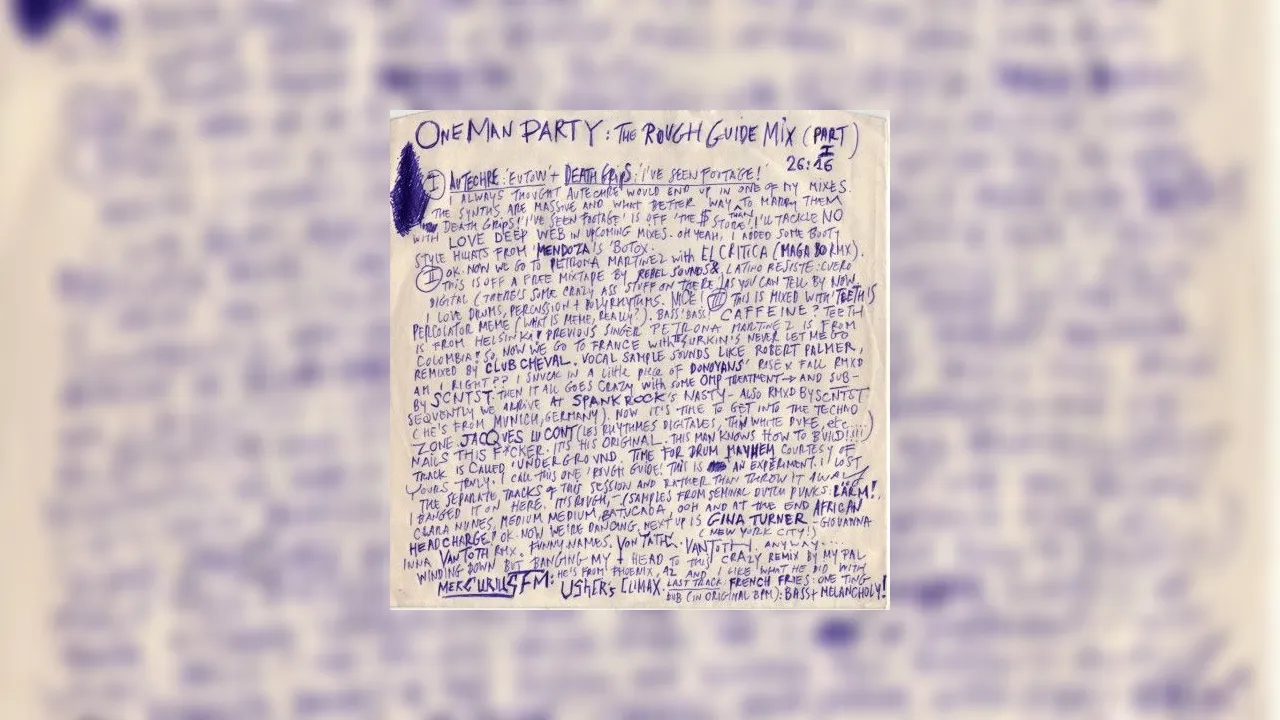 ONE MAN PARTY: THE ROUGH GUIDE MIX (PART I)
26:16
I AUTECHRE: 'EUTOW' + DEATH GRIPS: 'I'VE SEEN FOOTAGE!'
I ALWAYS THOUGHT AUTECHRE WOULD END UP IN ONE OF MY MIXES.
THE SYNTHS ARE MASSIVE AND WHAT BETTER WAY TO MARRY THEM
WITH DEATH GRIPS! 'I'VE SEEN FOOTAGE' IS OFF 'THE $ STORE'. I'LL TACKLE NO
LOVE DEEP WEB IN UPCOMING MIXES. OH YEAH, I ADDED SOME BOOTY
STYLE HURTS FROM MENDOZA'S 'BOTOX.
II OK. NOW WE GO TO PETRONA MARTINEZ WITH EL CRITICA (MAGA BO RMX).
THIS IS OFF A FREE MIXTAPE BY REBEL SOUNDS &, LATINO RESISTE: CUERO
DIGITAL (THERE'S SOME CRAZY ASS STUFF ON THERE. AS YOU CAN TELL BY NOW
I LOVE DRUMS, PERCUSSION + POLYRHYTHMS. NICE! III THIS IS MIXED WITH TEETH'S
PERCOLATOR MEME (WHAT IS MEME, REALLY?). BASS BASS CAFFEINE? TEETH
IS FROM HELSINKI! PREVIOUS SINGER PETRONA MARTINEZ IS FROM
COLOMBIA! SO, NOW WE GO TO FRANCE WITH SURKIN'S NEVER LET ME GO
REMIXED BY CLUB CHEVAL. VOCAL SAMPLE SOUNDS LIKE ROBERT PALMER,
AM I RIGHT?? I SNUCK IN A LITTLE PIECE OF DONOVANS' ROSE X FALL RMXD
BY SCNTST THEN IT ALL GOES CRAZY WITH SOME OMP TREATMENT → AND SUB-
SEQUENTLY WE ARRIVE AT SPANKROCK'S NASTY - ALSO RMXD BY SCNTST
(HE'S FROM MUNICH, GERMANY). NOW IT'S TIME TO GET INTO THE TECHNO
ZONE. JACQUES LU CONT (LES RHYTHMES DIGITALES, THIN WHITE DUKE, etc...)
NAILS THIS F*CKER. IT'S HIS ORIGINAL. THIS MAN KNOWS HOW TO BUILD!!!!
TRACK IS CALLED 'UNDERGROUND. TIME FOR DRUM MAYHEM COURTESY OF
YOURS TRULY. I CALL THIS ONE 'ROUGH GUIDE! THIS IS AN EXPERIMENT. I LOST
THE SEPARATE TRACKS OF THIS SESSION AND RATHER THAN THROW IT AWAY
I BANGED IT ON HERE. IT'S ROUGH - (SAMPLES FROM SEMINAL DUTCH PUNKS: LÄRM!,
CLARA NUNES, MEDIUM MEDIUM, BATUCADA, OOH AND AT THE END AFRICAN
HEADCHARGE! OK. NOW WE'RE DANCING, NEXT UP IS GINA TURNER - GIOVANNA
(NEW YORK CITY!)
INNA VANTOTH RMX. FUNNY NAMES. VON TATH. VANTOTH. ANYWAY....
WINDING DOWN BUT BANGING MY HEAD TO THIS CRAZY REMIX BY MY PAL
MERCURIUS FM: HE'S FROM PHOENIX, AZ AND I LIKE WHAT HE DID WITH
USHER's CLIMAX. LAST TRACK: FRENCH FRIES: ONE TING
DUB (IN ORIGINAL BPM): BASS + MELANCHOLY!